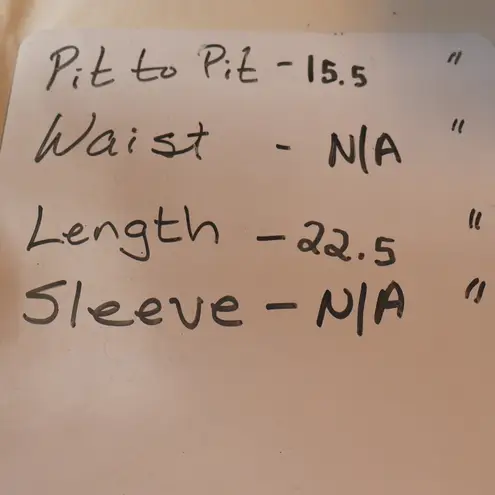 Pit to Pit - 15.5 "
Waist - N/A "
Length - 22.5 "
Sleeve - N/A "